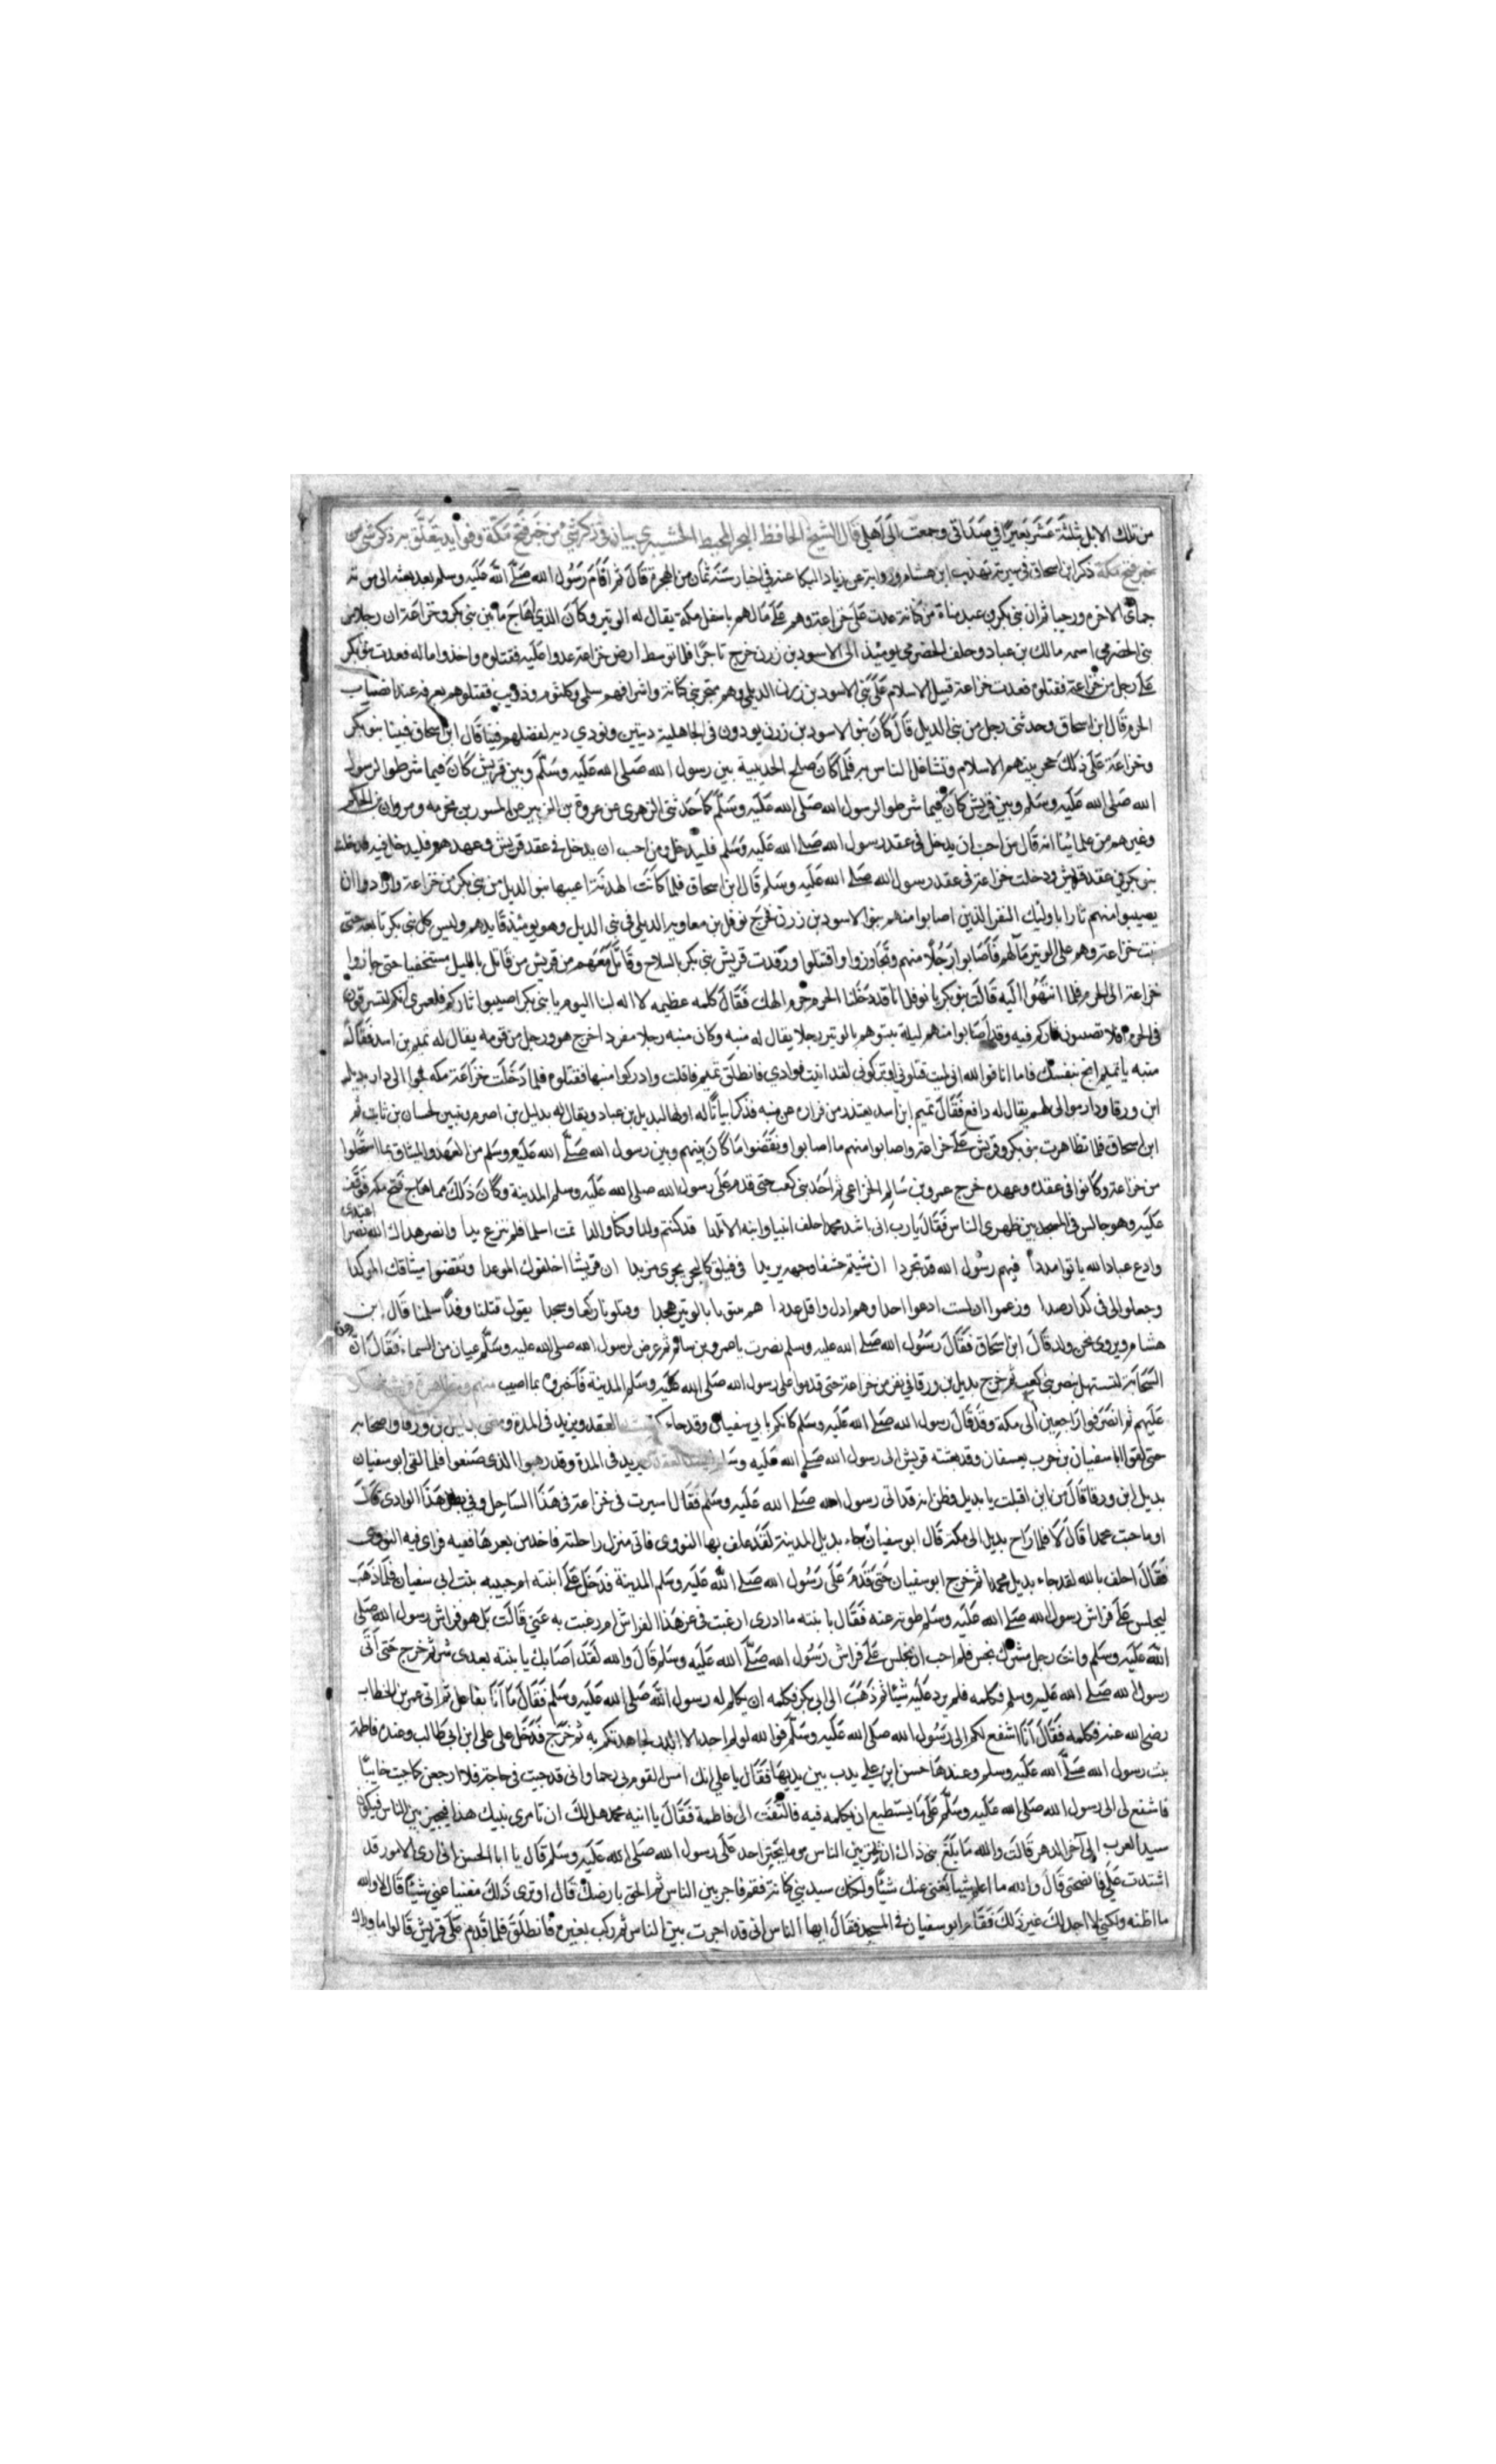 من تلك الابل ثلثة عشر بعيرا في صداقي وجمعت الى اهلي قال الشيخ الحافظ البحر المحيط في ذكر شي من خبر فتح مكة وفوايد يتعلق به ذكر شي من
خبر فتح مكة ذكر ابن اسحاق في سيرته تهذيب ابن هشام وروايته عن زياد البكا عنه في اخبار سنة ثمان من الهجرة قال ثم اقام رسول الله صلى الله عليه وسلم بعد بعثه الى موته
جمادى الاخر ورجبا ثم ان بني بكر بن عبد مناة من كنانة عدت على خزاعة وهم على ما لهم باسفل مكة يقال له الوتير وكان الذي هاج ما بين بني بكر وخزاعة ان رجلا من
بني الحضرمي اسمه مالك بن عباد وحلف الحضرمي يومئذ الى الاسود بن زرن خرج تاجرا فلما توسط ارض خزاعة عدوا عليه فقتلوه واخذوا ماله فعدت بنو بكر
على رجل من خزاعة فقتلوه فعدت خزاعة قبيل الاسلام على بني الاسود بن زرن الديلي وهم منخر بني كنانة واشرافهم سلمى وكلثوم وذويب فقتلوهم بعرفة عند انصاب
الحرم قال ابن اسحاق وحدثني رجل من بني الديل قال كان بنو الاسود بن زرن يودون في الجاهلية ديتين ونودي دية لفضلهم فينا قال ابن اسحاق فبينا بنو بكر
وخزاعة على ذلك حجز بينهم الاسلام وتشاغل الناس به فلما كان صلح الحديبية بين رسول الله صلى الله عليه وسلم وبين قريش كان فيما شرطوا لرسول
الله صلى الله عليه وسلم وبين قريش كان فيما شرطوا لرسول الله صلى الله عليه وسلم كما حدثني الزهري عن عروة بن الزبير عن المسور بن مخرمه ومروان بن الحكم
وغيرهم من علمائنا انه قال من احب ان يدخل في عقد رسول الله صلى الله عليه وسلم فليدخل ومن احب ان يدخل في عقد قريش وعهدهم فليدخل فيه فدخلت
بنو بكر في عقد قريش ودخلت خزاعة في عقد رسول الله صلى الله عليه وسلم قال ابن اسحاق فلما كانت الهدنة اغتنمها بنو الديل من بني بكر من خزاعة وارادوا ان
يصيبوا منهم ثارا باوليك النفر الذين اصابوا منهم بنو الاسود بن زرن فخرج نوفل بن معاوية الديلي في بني الديل وهو يومئذ قايدهم وليس كل بني بكر تابعه حتى
بيت خزاعة وهم على الوتير ما لهم فاصابوا رجلا منهم وتجاوزوا واقتتلوا ورفدت قريش بني بكر بالسلاح وقاتل معهم من قريش من قاتل بالليل مستخفيا حتى حازوا
خزاعة الى الحرم فلما انتهوا اليه قالت بنو بكر يا نوفل انا قد دخلنا الحرم الهك فقال كلمه عظيمه لا اله لنا اليوم يا بني بكر اصيبوا ثاركم فلعمري انكم لتسرقون
في الحرم افلا تصيبون ثاركم فيه وقد اصابوا منهم ليلة بيتوهم بالوتير رجلا يقال له منبه وكان منبه رجلا مفردا خرج هو ورجل من قومه يقال له تميم بن اسد فقال له
منبه يا تميم انج بنفسك فاما انا فوالله اني لميت قتلوني او تركوني لقد انبت فوادي فانطلق تميم فافلت وادركوا منبها فقتلوه فلما دخلت خزاعة مكه لجوا الى دار بديل
ابن ورقا ودار مولى لهم يقال له رافع فقال تميم ابن اسد يعتذر من فراره عن منبه فذكر ابياتا له
ابن اسحاق فلما تظاهرت بنو بكر وقريش على خزاعة واصابوا منهم ما اصابوا ونقضوا ما كان بينهم وبين رسول الله صلى الله عليه وسلم من العهد والميثاق بما استحلوا
من خزاعة وكانوا في عقده وعهده خرج عمرو بن سالم الخزاعي ثم احد بني كعب حتى قدم على رسول الله صلى الله عليه وسلم المدينة وكان ذلك مما هاج فتح مكه فوقف
عليه وهو جالس في المسجد بين ظهري الناس فقال يارب اني ناشد محمدا حلف ابينا وابيه الاتلدا قد كنتم ولدا وكنا والدا ثمت اسلمنا فلم ننزع يدا وانصر هداك الله نصرا اعتدى
وادع عباد الله ياتوا مددا فيهم رسول الله قد تجردا ان سيم خسفا وجهه تربدا في فيلق كالبحر يجري مزبدا ان قريشا اخلفوك الموعدا ونقضوا ميثاقك الموكدا
وجعلوا لي في كدا رصدا وزعموا ان لست ادعوا احدا وهم اذل واقل عددا هم بيتونا بالوتير هجدا وقتلونا ركعا وسجدا يقول قتلنا وقد اسلمنا قال ابن
هشام ويروى نحن ولد قال ابن اسحاق فقال رسول الله صلى الله عليه وسلم نصرت يا عمرو بن سالم ثم عرض لرسول الله صلى الله عليه وسلم عنان من السماء فقال ان هذه
السحابة لتستهل بنصر بني كعب ثم خرج بديل بن ورقا في نفر من خزاعة حتى قدموا على رسول الله صلى الله عليه وسلم المدينة فاخبروه بما اصيب منهم
عليهم ثم انصرفوا راجعين الى مكة وقد قال رسول الله صلى الله عليه وسلم كانكم بابي سفيان وقد جاءكم العقد ويزيد في المدة بديل بن ورقا واصحابه
حتى لقوا ابا سفيان بن حرب بعسفان وقد بعثته قريش الى رسول الله صلى الله عليه وسلم ويزيد في المدة وقد رهبوا الذي صنعوا فلما لقي ابو سفيان
بديل ابن ورقا قال من اين اقبلت يا بديل وظن انه قد اتى رسول الله صلى الله عليه وسلم فقال سيرت في خزاعة في هذا الساحل وفي بطن هذا الوادي قال
او ما جيت محمدا قال لا فلما راح بديل الى مكة قال ابو سفيان لين جاء بديل المدينة لقد علف بها النوى فاتى منزل راحلته فاخذ من بعرها ففته فراى فيه النوى
فقال احلف بالله لقد جاء بديل محمدا ثم خرج ابو سفيان حتى قدم على رسول الله صلى الله عليه وسلم المدينة فدخل على ابنته ام حبيبه بنت ابي سفيان فلما ذهب
ليجلس على فراش رسول الله صلى الله عليه وسلم طوته عنه فقال يا بنته ما ادري ارغبت بي عن هذا الفراش ام رغبت به عني قالت بل هو فراش رسول الله صلى
الله عليه وسلم وانت رجل مشرك نجس فلم احب ان تجلس على فراش رسول الله صلى الله عليه وسلم قال والله لقد اصابك يا بنته بعدي شر ثم خرج حتى اتى
رسول الله صلى الله عليه وسلم فكلمه فلم يرد عليه شيئا ثم ذهب الى ابي بكر فكلمه ان يكلم له رسول الله صلى الله عليه وسلم فقال ما انا بفاعل ثم اتى عمر بن الخطاب
رضي الله عنه فكلمه فقال انا اشفع لكم الى رسول الله صلى الله عليه وسلم فوالله لو لم اجد الا الذر لجاهدتكم به ثم خرج فدخل على علي ابن ابي طالب وعنده فاطمة
بنت رسول الله صلى الله عليه وسلم وعندها حسن ابن علي يدب بين يديها فقال يا علي انك امس القوم بي رحما واني قد جيت في حاجة فلا ارجعن كما جيت خايبا
فاشفع لي الى رسول الله صلى الله عليه وسلم على ما يستطيع ان يكلمه فيه فالتفت الى فاطمة فقال يا ابنة محمد هل لك ان تامري بنيك هذا فيجير بين الناس فيكون
سيد العرب الى آخر الدهر قالت والله ما بلغ بني ذاك ان يجير بين الناس وما يجير احد على رسول الله صلى الله عليه وسلم قال يا ابا الحسن اني ارى الامور قد
اشتدت علي فانصحني قال والله ما اعلم شيا يغني عنك شيئا ولكنك سيد بني كنانة فقم فاجر بين الناس ثم الحق بارضك قال او ترى ذلك مغنيا عني شيئا قال لا والله
ما اظنه ولكني لا اجد لك غير ذلك فقام ابو سفيان في المسجد فقال ايها الناس اني قد اجرت بين الناس ثم ركب بعيره فانطلق فلما قدم على قريش قالوا ما وراك